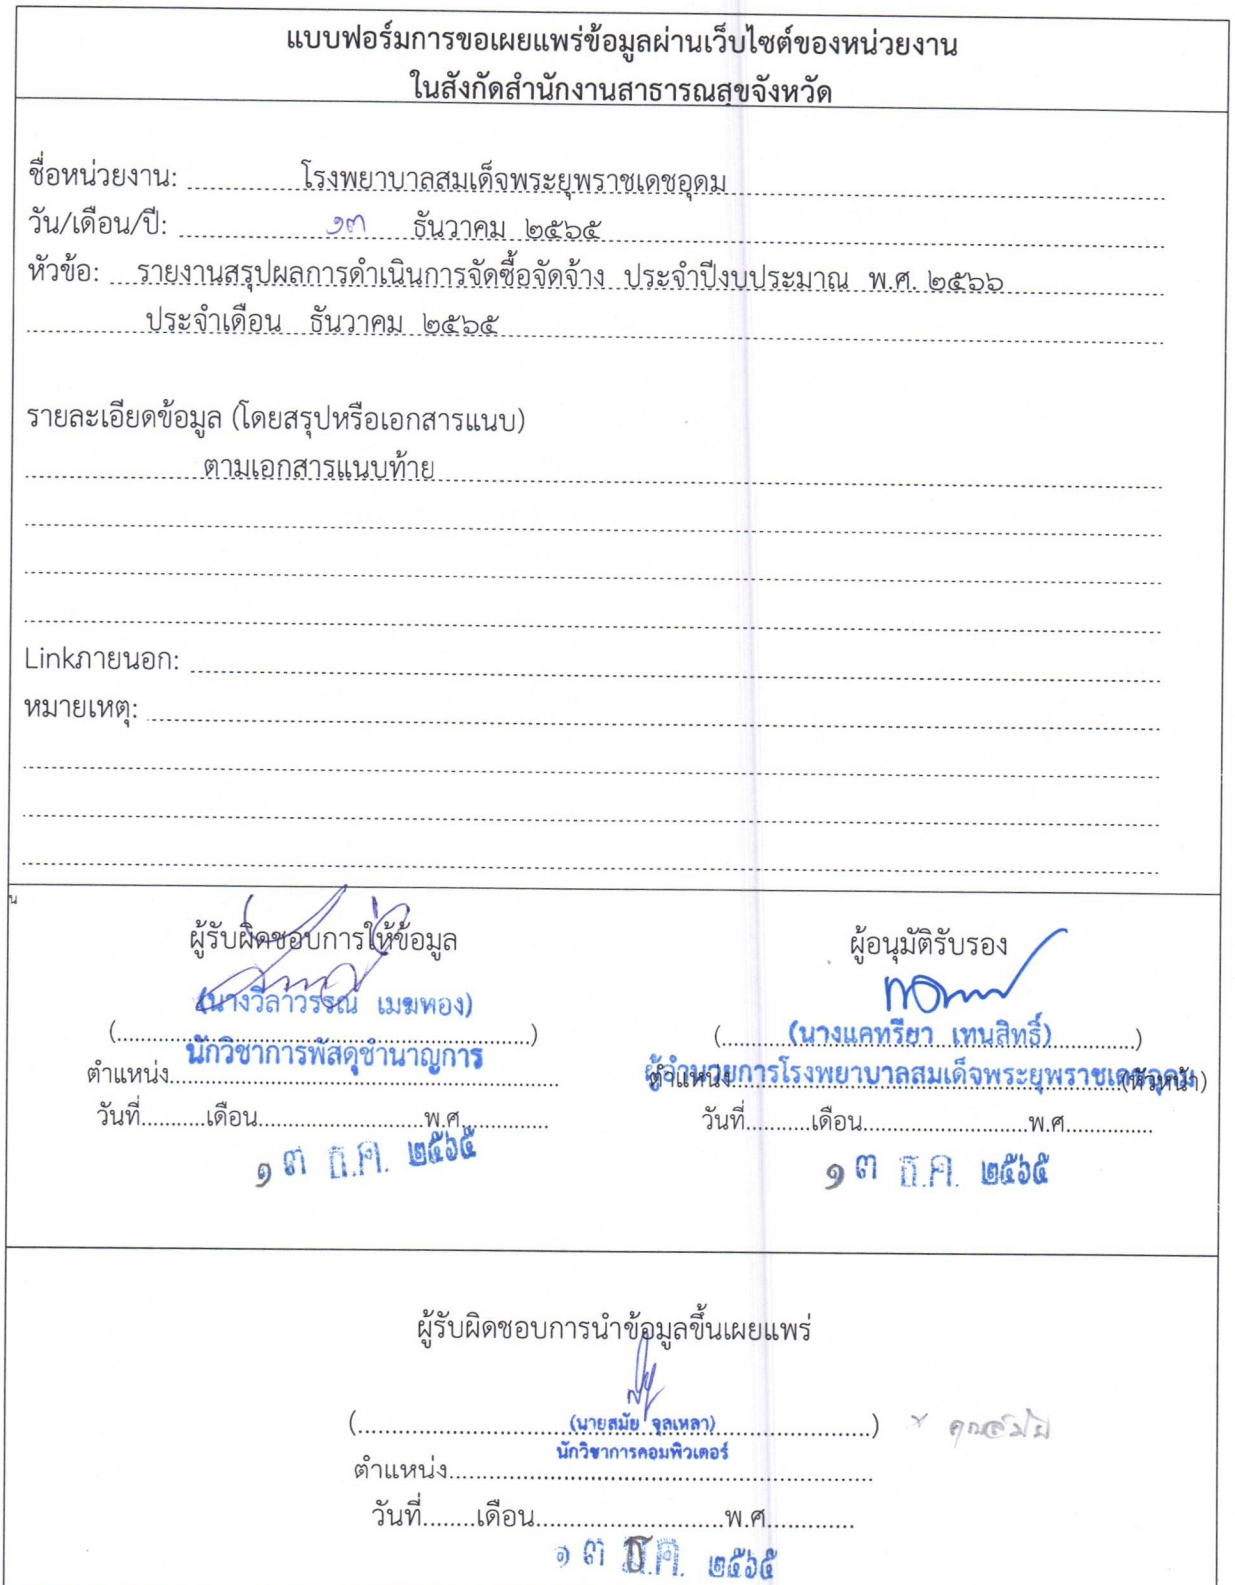 แบบฟอร์มการขอเผยแพร่ข้อมูลผ่านเว็บไซต์ของหน่วยงาน
ในสังกัดสำนักงานสาธารณสุขจังหวัด
ชื่อหน่วยงาน: โรงพยาบาลสมเด็จพระยุพราชเดชอุดม
วัน/เดือน/ปี: ๑๓ ธันวาคม ๒๕๖๕
หัวข้อ: รายงานสรุปผลการดำเนินการจัดซื้อจัดจ้าง ประจำปีงบประมาณ พ.ศ. ๒๕๖๖
ประจำเดือน ธันวาคม ๒๕๖๕
รายละเอียดข้อมูล (โดยสรุปหรือเอกสารแนบ)
ตามเอกสารแนบท้าย
Linkภายนอก:
หมายเหตุ:
น
ผู้รับผิดชอบการให้ข้อมูล
(นางวิลาวรรณ เมฆทอง)
(....................)
นักวิชาการพัสดุชำนาญการ
ตำแหน่ง....................
วันที่...........เดือน....................พ.ศ...............
๑๓ ธ.ค. ๒๕๖๕
ผู้อนุมัติรับรอง
(นางแคทรียา เทนสิทธิ์)
(....................)
ผู้อำนวยการโรงพยาบาลสมเด็จพระยุพราชเดชอุดม
ตำแหน่ง....................(หัวหน้า)
วันที่...........เดือน....................พ.ศ...............
๑๓ ธ.ค. ๒๕๖๕
ผู้รับผิดชอบการนำข้อมูลขึ้นเผยแพร่
(....................(นายสมัย จุลเหลา)....................) × คุณสมัย
นักวิชาการคอมพิวเตอร์
ตำแหน่ง....................
วันที่........เดือน....................พ.ศ.............
๑๓ ธ.ค. ๒๕๖๕